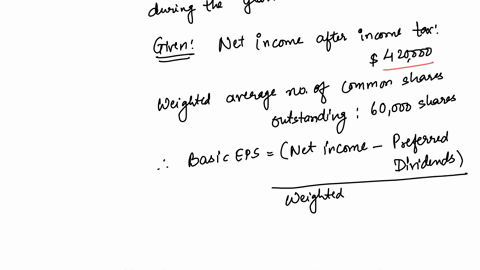 during the
Given: Net income after income tax:
$ 420,000
Weighted average no. of common shares
outstanding : 60,000 shares
∴ Basic EPS = (Net income - Preferred
Dividends)
Weighted